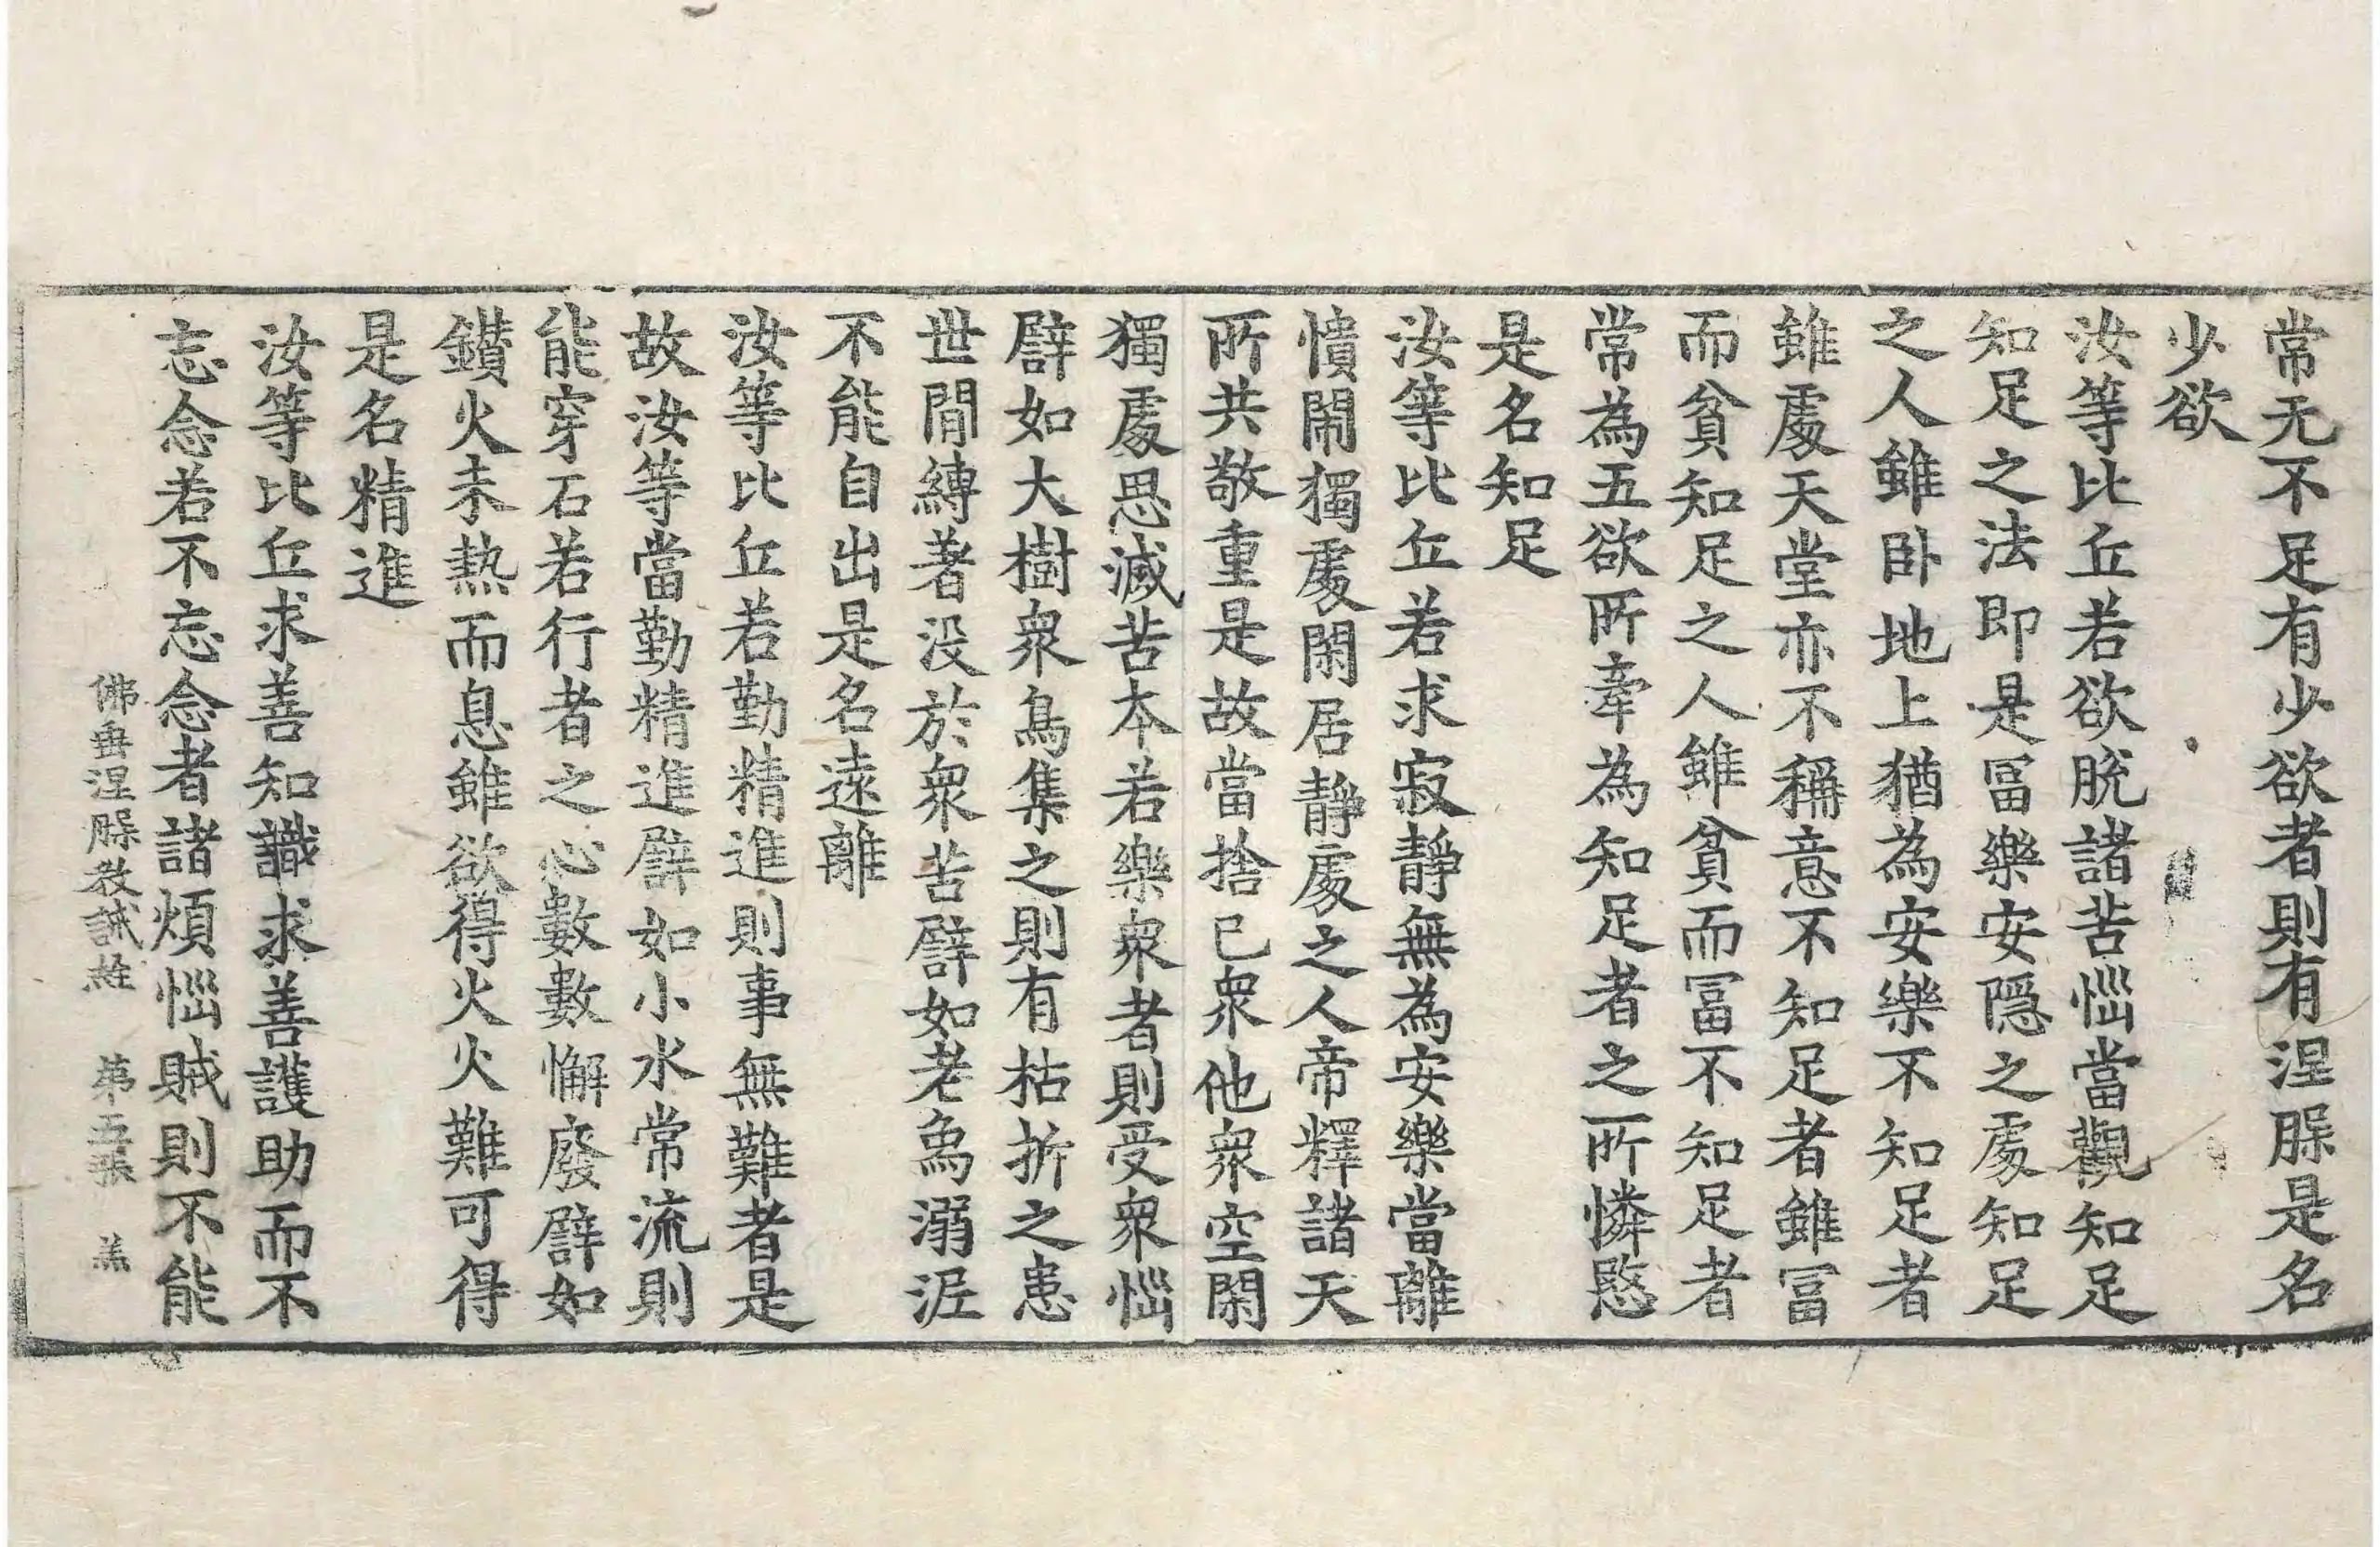 常无不足有少欲者則有涅槃是名
少欲
汝等比丘若欲脫諸苦惱當觀知足
知足之法即是冨樂安隱之處知足
之人雖卧地上猶為安樂不知足者
雖處天堂亦不稱意不知足者雖冨
而貧知足之人雖貧而冨不知足者
常為五欲所牽為知足者之所憐愍
是名知足
汝等比丘若求寂靜無為安樂當離
憒閙獨處閑居靜處之人帝釋諸天
所共敬重是故當捨己衆他衆空閑
獨處思滅苦本若樂衆者則受衆惱
譬如大樹衆鳥集之則有枯折之患
世間縛著没於衆苦譬如老象溺泥
不能自出是名遠離
汝等比丘若勤精進則事無難者是
故汝等當勤精進譬如小水常流則
能穿石若行者之心數數懈廢譬如
鑚火未熱而息雖欲得火火難可得
是名精進
汝等比丘求善知識求善護助而不
忘念若不忘念者諸煩惱賊則不能
佛垂涅槃教誡経 第五張 羔